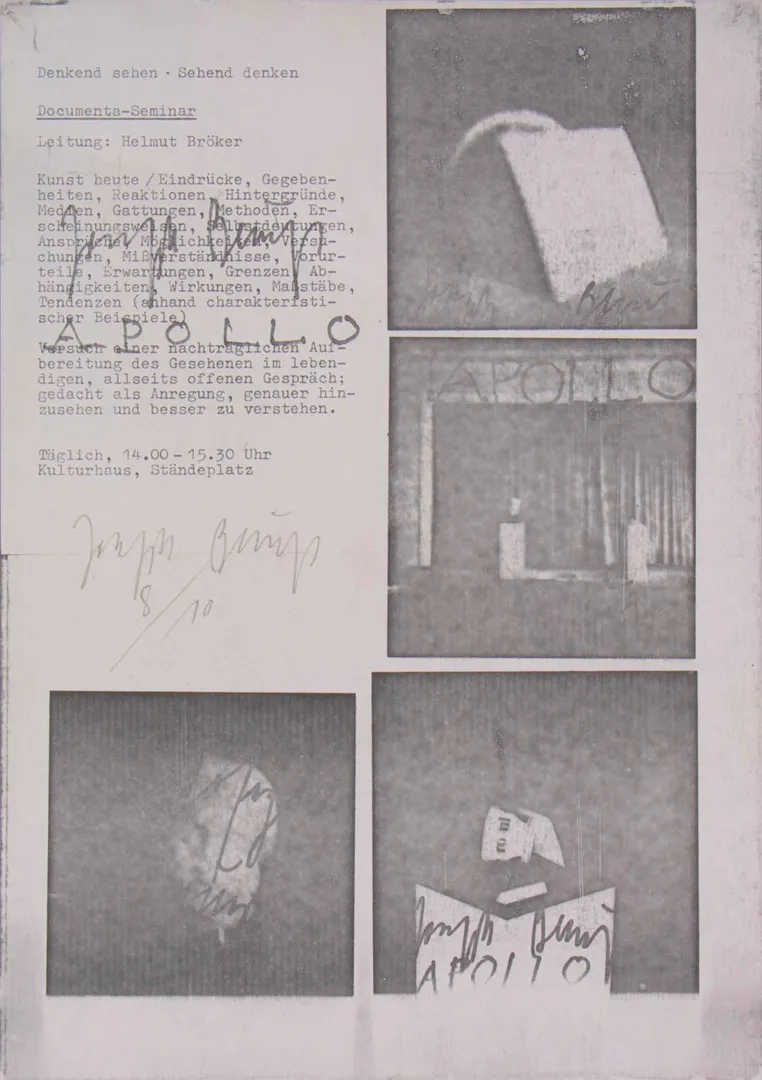 Denkend sehen · Sehend denken
Documenta-Seminar
Leitung: Helmut Bröker
Kunst heute / Eindrücke, Gegeben-
heiten, Reaktionen, Hintergründe,
Medien, Gattungen, Methoden, Er-
scheinungsweisen, Selbstdeutungen,
Ansprüche, Möglichkeiten, Versu-
chungen, Mißverständnisse, Vorur-
teile, Erwartungen, Grenzen, Ab-
hängigkeiten, Wirkungen, Maßstäbe,
Tendenzen (anhand charakteristi-
scher Beispiele)
Joseph Beuys
APOLLO
Versuch einer nachträglichen Auf-
bereitung des Gesehenen im leben-
digen, allseits offenen Gespräch;
gedacht als Anregung, genauer hin-
zusehen und besser zu verstehen.
Täglich, 14.00 - 15.30 Uhr
Kulturhaus, Ständeplatz
Joseph Beuys
8/10
Joseph Beuys
APOLLO
Joseph Beuys
APOLLO